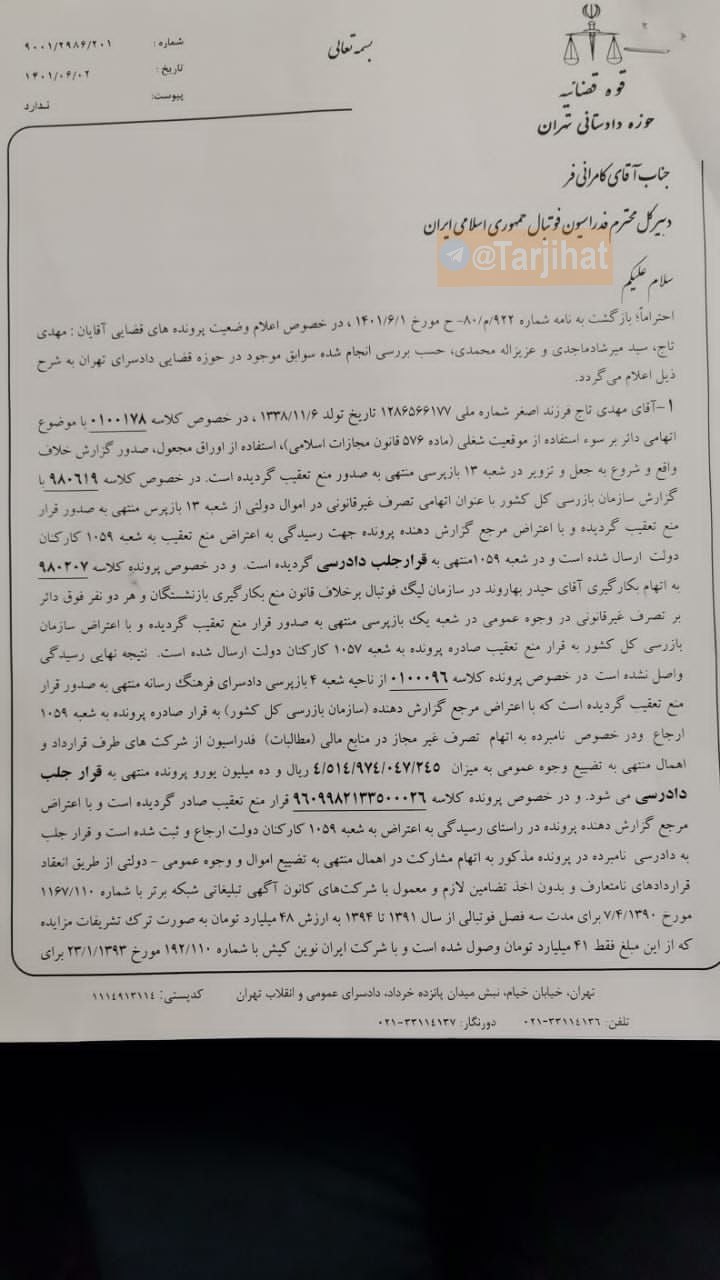 بسمه تعالی
قوه قضائیه
حوزه دادستانی تهران
شماره : ۹۰۰۱/۲۹۸۶/۲۰۱
تاریخ : ۱۴۰۱/۰۶/۰۲
پیوست: ندارد
جناب آقای کامرانی فر
دبیر کل محترم فدراسیون فوتبال جمهوری اسلامی ایران
@Tarjihat
سلام علیکم
احتراماً؛ بازگشت به نامه شماره ۹۲۲/م/۸۰- ح مورخ ۱۴۰۱/۶/۱ ، در خصوص اعلام وضعیت پرونده های قضایی آقایان : مهدی
تاج، سید میرشادماجدی و عزیزاله محمدی، حسب بررسی انجام شده سوابق موجود در حوزه قضایی دادسرای تهران به شرح
ذیل اعلام می‌گردد.
۱-آقای مهدی تاج فرزند اصغر شماره ملی ۱۲۸۶۵۶۶۱۷۷ تاریخ تولد ۱۳۳۸/۱۱/۶ ، در خصوص کلاسه ۰۱۰۰۱۷۸ با موضوع
اتهامی دائر بر سوء استفاده از موقعیت شغلی (ماده ۵۷۶ قانون مجازات اسلامی)، استفاده از اوراق مجعول، صدور گزارش خلاف
واقع و شروع به جعل و تزویر در شعبه ۱۳ بازپرسی منتهی به صدور منع تعقیب گردیده است. در خصوص کلاسه ۹۸۰۶۱۹ با
گزارش سازمان بازرسی کل کشور با عنوان اتهامی تصرف غیرقانونی در اموال دولتی از شعبه ۱۳ بازپرس منتهی به صدور قرار
منع تعقیب گردیده و با اعتراض مرجع گزارش دهنده پرونده جهت رسیدگی به اعتراض منع تعقیب به شعبه ۱۰۵۹ کارکنان
دولت ارسال شده است و در شعبه ۱۰۵۹منتهی به قرارجلب دادرسی گردیده است. و در خصوص پرونده کلاسه ۹۸۰۲۰۷
به اتهام بکارگیری آقای حیدر بهاروند در سازمان لیگ فوتبال برخلاف قانون منع بکارگیری بازنشستگان و هر دو نفر فوق دائر
بر تصرف غیرقانونی در وجوه عمومی در شعبه یک بازپرسی منتهی به صدور قرار منع تعقیب گردیده و با اعتراض سازمان
بازرسی کل کشور به قرار منع تعقیب صادره پرونده به شعبه ۱۰۵۷ کارکنان دولت ارسال شده است. نتیجه نهایی رسیدگی
واصل نشده است در خصوص پرونده کلاسه ۰۱۰۰۰۹۶ از ناحیه شعبه ۴ بازپرسی دادسرای فرهنگ رسانه منتهی به صدور قرار
منع تعقیب گردیده است که با اعتراض مرجع گزارش دهنده (سازمان بازرسی کل کشور) به قرار صادره پرونده به شعبه ۱۰۵۹
ارجاع ودر خصوص نامبرده به اتهام تصرف غیر مجاز در منابع مالی (مطالبات) فدراسیون از شرکت های طرف قرارداد و
اهمال منتهی به تضییع وجوه عمومی به میزان ۴/۵۱۴/۹۷۴/۰۴۷/۲۴۵ ریال و ده میلیون یورو پرونده منتهی به قرار جلب
دادرسی می شود. و در خصوص پرونده کلاسه ۹۶۰۹۹۸۲۱۳۳۵۰۰۰۲۶ قرار منع تعقیب صادر گردیده است و با اعتراض
مرجع گزارش دهنده پرونده در راستای رسیدگی به اعتراض به شعبه ۱۰۵۹ کارکنان دولت ارجاع و ثبت شده است و قرار جلب
به دادرسی نامبرده در پرونده مذکور به اتهام مشارکت در اهمال منتهی به تضییع اموال و وجوه عمومی - دولتی از طریق انعقاد
قراردادهای نامتعارف و بدون اخذ تضامین لازم و معمول با شرکت‌های کانون آگهی تبلیغاتی شبکه برتر با شماره ۱۱۶۷/۱۱۰
مورخ ۷/۴/۱۳۹۰ برای مدت سه فصل فوتبالی از سال ۱۳۹۱ تا ۱۳۹۴ به ارزش ۴۸ میلیارد تومان به صورت ترک تشریفات مزایده
که از این مبلغ فقط ۴۱ میلیارد تومان وصول شده است و با شرکت ایران نوین کیش با شماره ۱۹۲/۱۱۰ مورخ ۲۳/۱/۱۳۹۳ برای
تهران، خیابان خیام، نبش میدان پانزده خرداد، دادسرای عمومی و انقلاب تهران کدپستی: ۱۱۱۴۹۱۳۱۱۴
تلفن: ۳۳۱۱۴۱۳۶-۰۲۱ دورنگار: ۳۳۱۱۴۱۳۷-۰۲۱